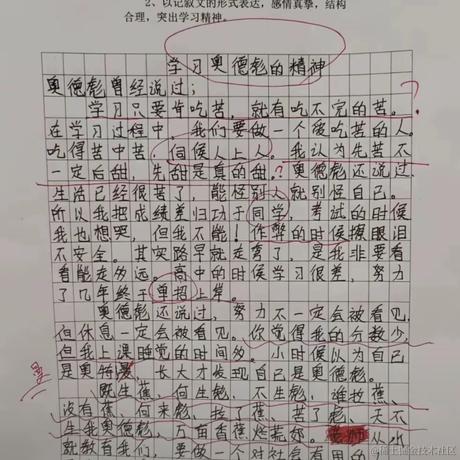 2、以记叙文的形式表达，感情真挚，结构
合理，突出学习精神。
学习奥德彪的精神
奥德彪曾经说过：
学习只要肯吃苦，就有吃不完的苦。?
在学习过程中，我们要做一个爱吃苦的人。
吃得苦中苦，伺候人上人。我认为先苦不
一定后甜，先甜是真的甜。?奥德彪还说过，
生活已经很苦了，能怪别人就别怪自己。
所以我把成绩差归功于同学，考试的时候
我也想哭，但我不能！作弊的时候擦眼泪
不安全。其实路早就走弯了，是我非要看
看能走多远。高中的时候学习很差，努力
了几年终于单招上岸。
奥德彪还说过，努力不一定会被看见，
但休息一定会被看见。你觉得我的分数少，
但我上课睡觉的时间多。小时候以为自己
是奥特曼，长大才发现自己是奥德彪。
既生蕉，何生彪，不生彪，谁拉蕉，
没有蕉，何来彪，拉了蕉，苦了彪，天不
生我奥德彪，万亩香蕉烂荒郊。老师从小
就教育我们，要做一个对社会有用的
@稀土掘金技术社区